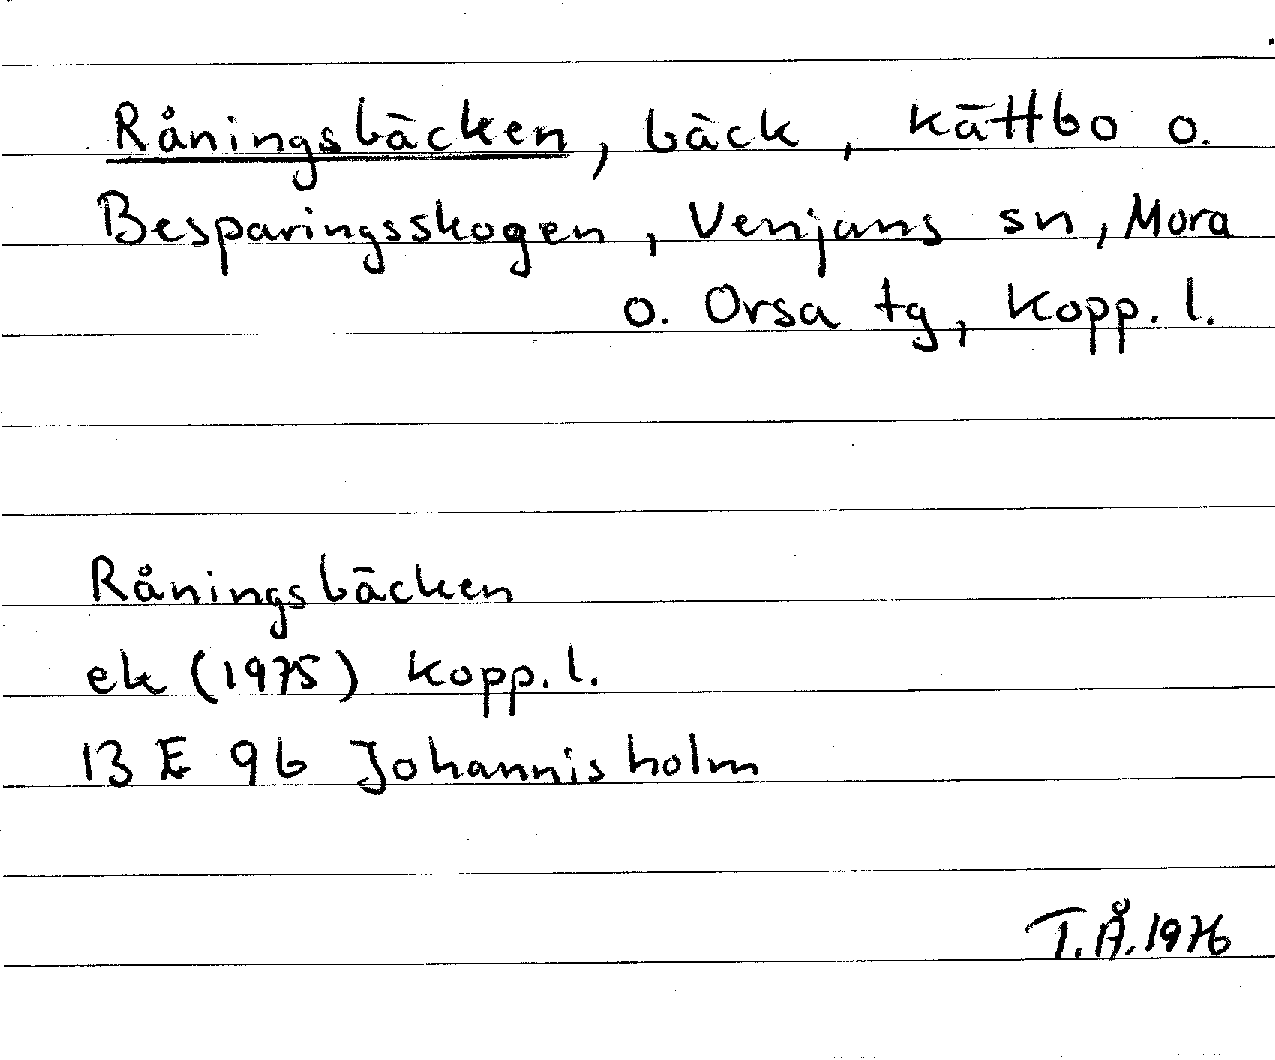 Råningsbäcken, bäck, Kättbo o.
Besparingsskogen, Venjans sn, Mora
o. Orsa tg, Kopp. l.
Råningsbäcken
ek (1975) Kopp. l.
13 E 9b Johannisholm
T.Å. 1976